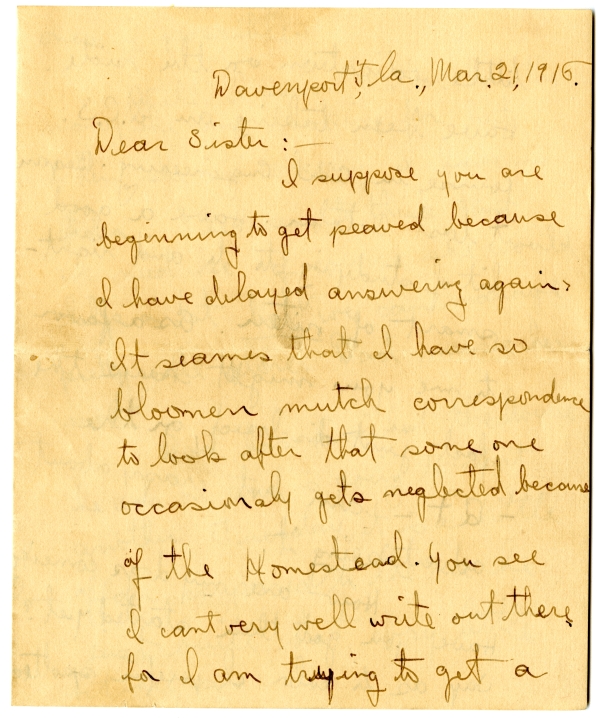 Davenport, Ia., Mar. 21, 1916.
Dear Sister :—
I suppose you are
beginning to get peaved because
I have delayed answering again.
It seames that I have so
bloomen mutch correspondence
to look after that some one
occasionaly gets neglected because
of the Homestead. You see
I cant very well write out there
for I am trying to get a